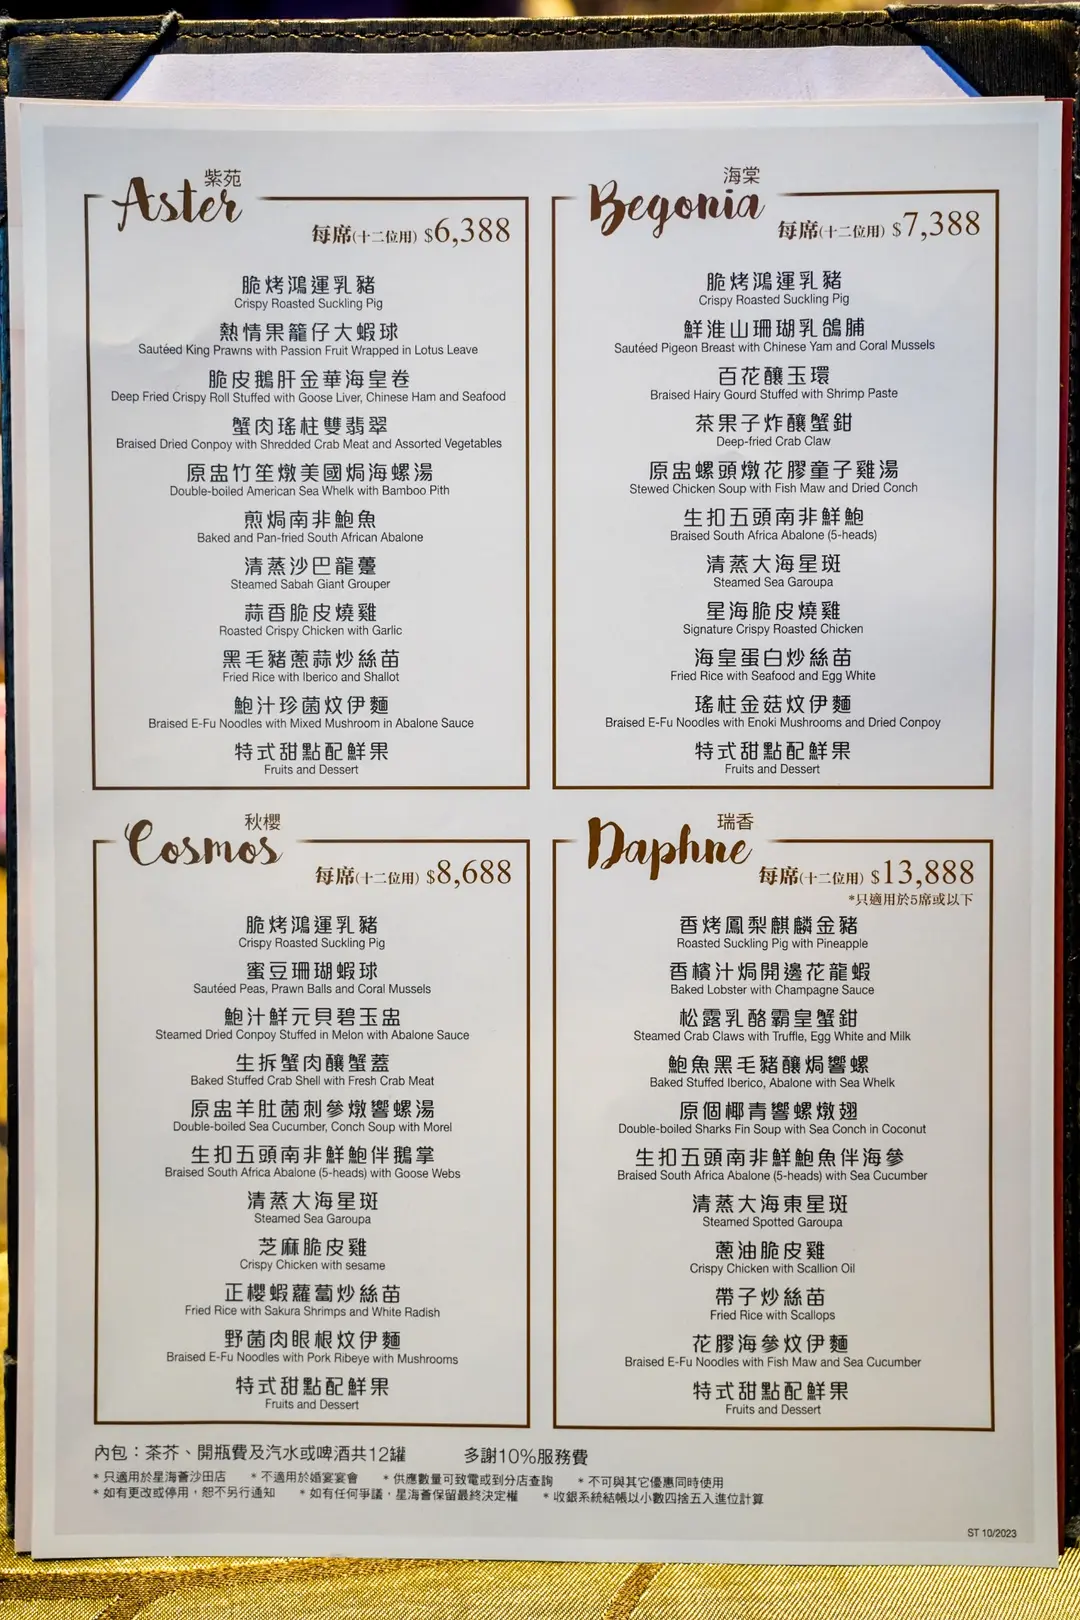 紫苑
Aster
每席(十二位用) $6,388
脆烤鴻運乳豬
Crispy Roasted Suckling Pig
熱情果籠仔大蝦球
Sautéed King Prawns with Passion Fruit Wrapped in Lotus Leave
脆皮鵝肝金華海皇卷
Deep Fried Crispy Roll Stuffed with Goose Liver, Chinese Ham and Seafood
蟹肉瑤柱雙翡翠
Braised Dried Conpoy with Shredded Crab Meat and Assorted Vegetables
原盅竹笙燉美國焗海螺湯
Double-boiled American Sea Whelk with Bamboo Pith
煎焗南非鮑魚
Baked and Pan-fried South African Abalone
清蒸沙巴龍躉
Steamed Sabah Giant Grouper
蒜香脆皮燒雞
Roasted Crispy Chicken with Garlic
黑毛豬蔥蒜炒絲苗
Fried Rice with Iberico and Shallot
鮑汁珍菌炆伊麵
Braised E-Fu Noodles with Mixed Mushroom in Abalone Sauce
特式甜點配鮮果
Fruits and Dessert
海棠
Begonia
每席(十二位用) $7,388
脆烤鴻運乳豬
Crispy Roasted Suckling Pig
鮮淮山珊瑚乳鴿脯
Sautéed Pigeon Breast with Chinese Yam and Coral Mussels
百花釀玉環
Braised Hairy Gourd Stuffed with Shrimp Paste
茶果子炸釀蟹鉗
Deep-fried Crab Claw
原盅螺頭燉花膠童子雞湯
Stewed Chicken Soup with Fish Maw and Dried Conch
生扣五頭南非鮮鮑
Braised South Africa Abalone (5-heads)
清蒸大海星斑
Steamed Sea Garoupa
星海脆皮燒雞
Signature Crispy Roasted Chicken
海皇蛋白炒絲苗
Fried Rice with Seafood and Egg White
瑤柱金菇炆伊麵
Braised E-Fu Noodles with Enoki Mushrooms and Dried Conpoy
特式甜點配鮮果
Fruits and Dessert
秋櫻
Cosmos
每席(十二位用) $8,688
脆烤鴻運乳豬
Crispy Roasted Suckling Pig
蜜豆珊瑚蝦球
Sautéed Peas, Prawn Balls and Coral Mussels
鮑汁鮮元貝碧玉盅
Steamed Dried Conpoy Stuffed in Melon with Abalone Sauce
生拆蟹肉釀蟹蓋
Baked Stuffed Crab Shell with Fresh Crab Meat
原盅羊肚菌刺參燉響螺湯
Double-boiled Sea Cucumber, Conch Soup with Morel
生扣五頭南非鮮鮑伴鵝掌
Braised South Africa Abalone (5-heads) with Goose Webs
清蒸大海星斑
Steamed Sea Garoupa
芝麻脆皮雞
Crispy Chicken with sesame
正櫻蝦蘿蔔炒絲苗
Fried Rice with Sakura Shrimps and White Radish
野菌肉眼根炆伊麵
Braised E-Fu Noodles with Pork Ribeye with Mushrooms
特式甜點配鮮果
Fruits and Dessert
瑞香
Daphne
每席(十二位用) $13,888
*只適用於5席或以下
香烤鳳梨麒麟金豬
Roasted Suckling Pig with Pineapple
香檳汁焗開邊花龍蝦
Baked Lobster with Champagne Sauce
松露乳酪霸皇蟹鉗
Steamed Crab Claws with Truffle, Egg White and Milk
鮑魚黑毛豬釀焗響螺
Baked Stuffed Iberico, Abalone with Sea Whelk
原個椰青響螺燉翅
Double-boiled Sharks Fin Soup with Sea Conch in Coconut
生扣五頭南非鮮鮑魚伴海參
Braised South Africa Abalone (5-heads) with Sea Cucumber
清蒸大海東星斑
Steamed Spotted Garoupa
蔥油脆皮雞
Crispy Chicken with Scallion Oil
帶子炒絲苗
Fried Rice with Scallops
花膠海參炆伊麵
Braised E-Fu Noodles with Fish Maw and Sea Cucumber
特式甜點配鮮果
Fruits and Dessert
內包：茶芥、開瓶費及汽水或啤酒共12罐 多謝10%服務費
*只適用於星海薈沙田店 *不適用於婚宴宴會 *供應數量可致電或到分店查詢 *不可與其它優惠同時使用
*如有更改或停用，恕不另行通知 *如有任何爭議，星海薈保留最終決定權 *收銀系統結帳以小數四捨五入進位計算
ST 10/2023